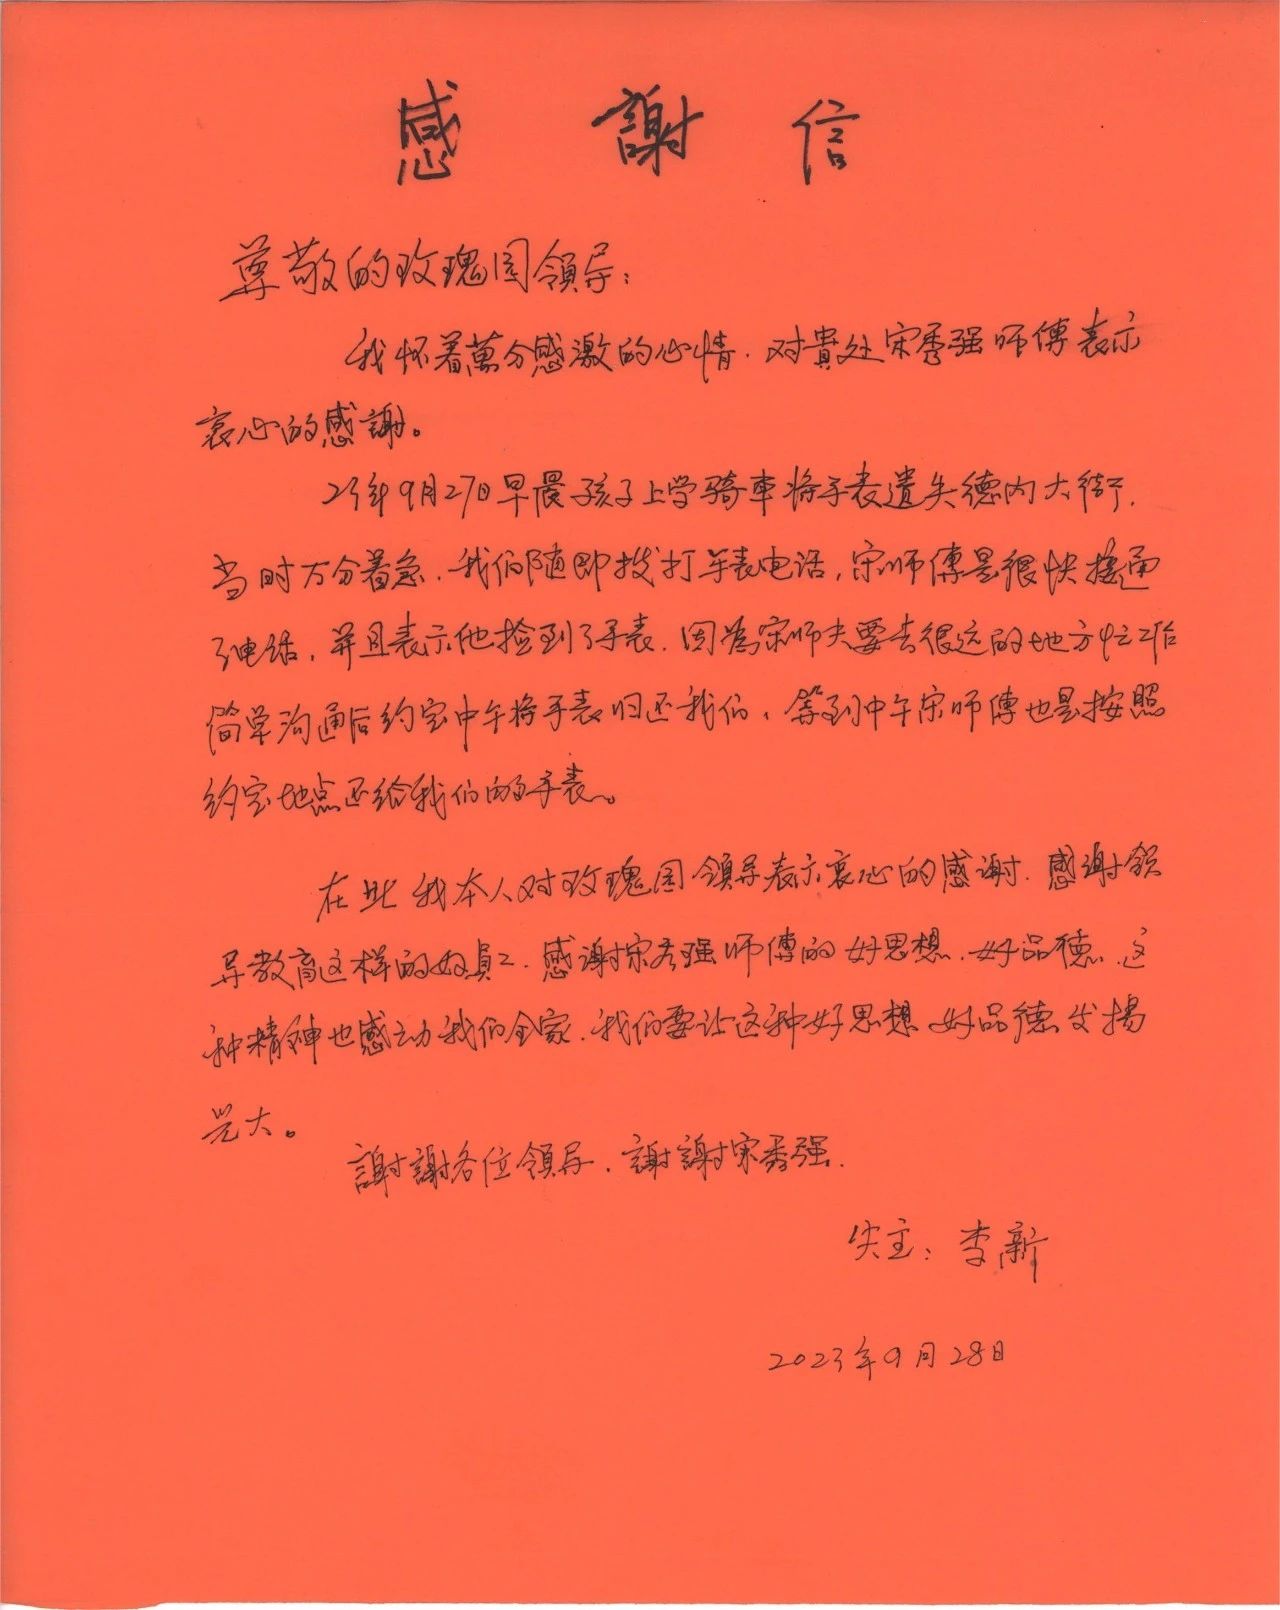 感謝信
尊敬的玫瑰园領导：
我怀着萬分感激的心情．对貴处宋秀强师傅表示
衷心的感謝。
23年9月27日早晨孩子上学骑車将手表遗失德内大街．
当时万分着急．我们随即拨打手表电话，宋师傅是很快接通
了电话，并且表示他捡到了手表．因為宋师夫要去很远的地方
简单沟通后约定中午将手表归还我们，等到中午宋师傅也是按照
约定地点还给我们的手表。
在此我本人对玫瑰园領导表示衷心的感谢．感谢领
导教育这样的好員工．感谢宋秀强师傅的好思想．好品德．这
种精神也感动我们全家．我们要让这种好思想 好品德发揚
光大。
謝謝各位領导．謝謝宋秀强．
失主：李新
2023年9月28日